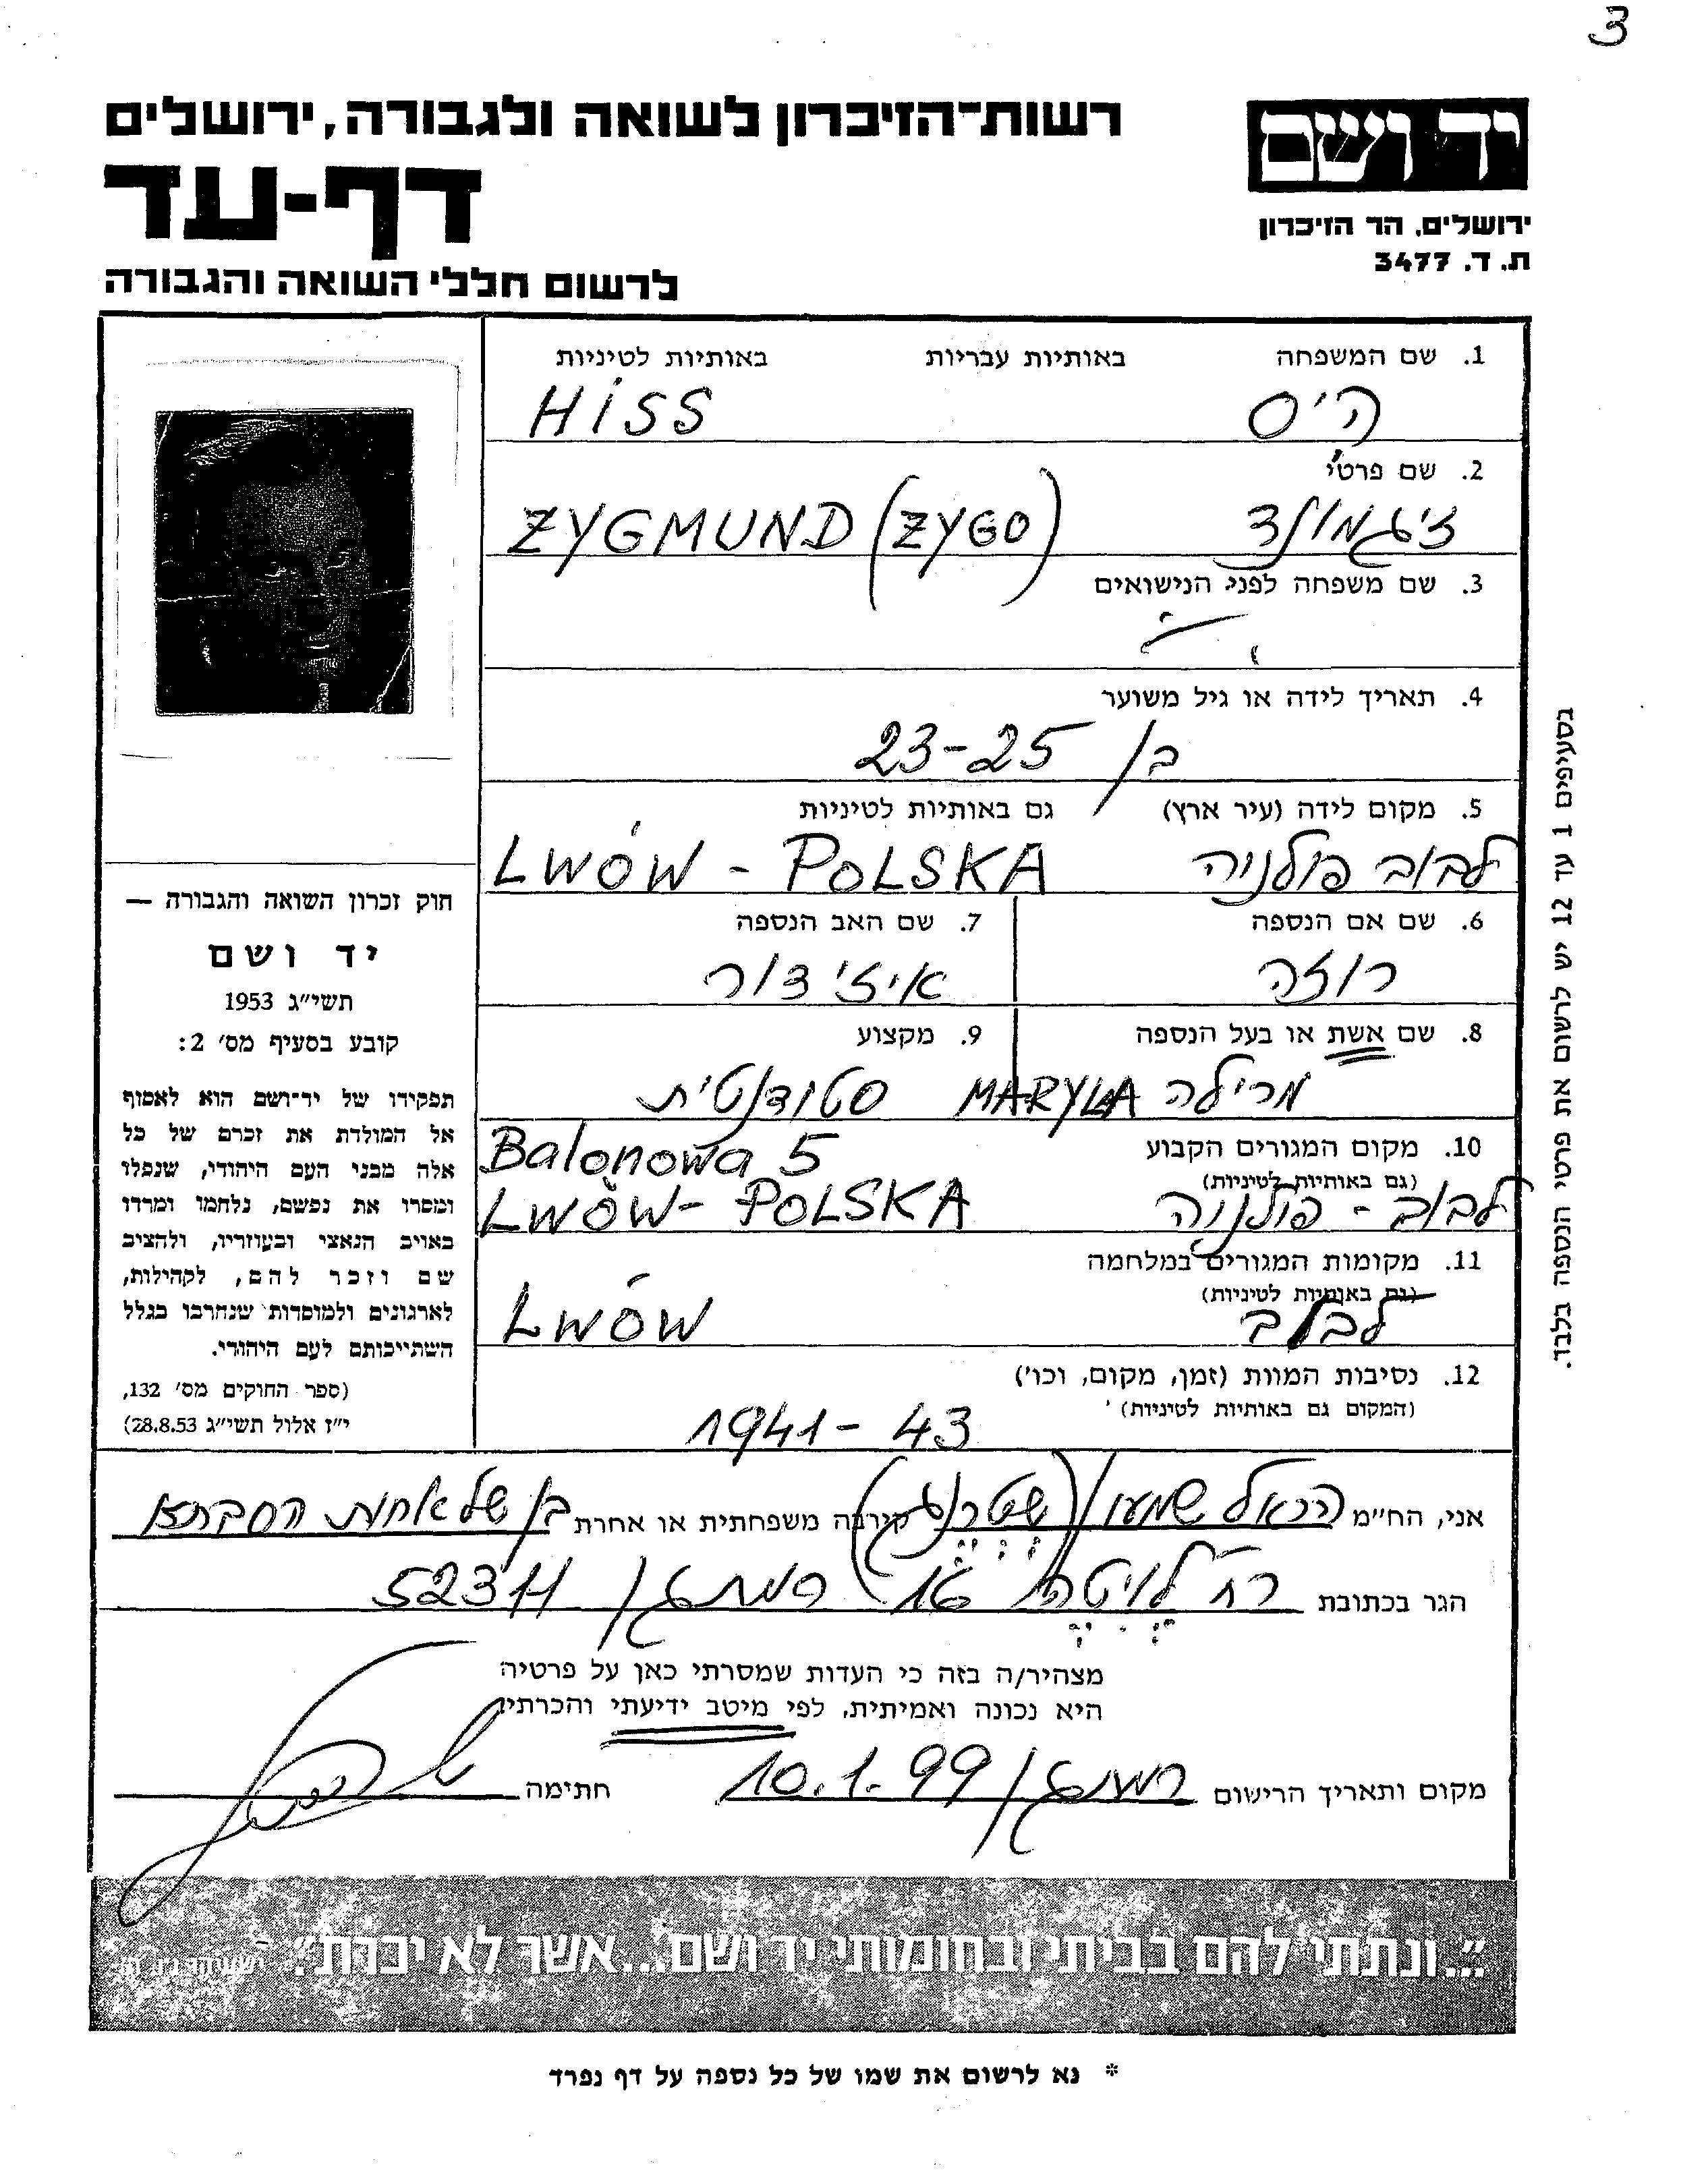 3
רשות־הזיכרון לשואה ולגבורה, ירושלים
דף-עד
לרשום חללי השואה והגבורה
יד ושם
ירושלים, הר הזיכרון
ת. ד. 3477
1. שם המשפחה באותיות עבריות באותיות לטיניות
היס HiSS
2. שם פרטי
זיגמונד ZYGMUND (ZYGO)
3. שם משפחה לפני הנישואים
4. תאריך לידה או גיל משוער
בן 23-25
5. מקום לידה (עיר ארץ) גם באותיות לטיניות
לבוב פולניה LWÓW - POLSKA
6. שם אם הנספה 7. שם האב הנספה
רוזה איזידור
8. שם אשת או בעל הנספה 9. מקצוע
מרילה MARYLA סטודנטית
10. מקום המגורים הקבוע
(גם באותיות לטיניות)
Balonowa 5
לבוב - פולניה LWÓW - POLSKA
11. מקומות המגורים במלחמה
(גם באותיות לטיניות)
לבוב LWÓW
12. נסיבות המוות (זמן, מקום, וכו')
(המקום גם באותיות לטיניות)
1941 - 43
חוק זכרון השואה והגבורה —
יד ושם
תשי״ג 1953
קובע בסעיף מס׳ 2:
תפקידו של יד־ושם הוא לאסוף
אל המולדת את זכרם של כל
אלה מבני העם היהודי, שנפלו
ומסרו את נפשם, נלחמו ומרדו
באויב הנאצי ובעוזריו, ולהציב
שם וזכר להם, לקהילות,
לארגונים ולמוסדות שנחרבו בגלל
השתייכותם לעם היהודי.
(ספר החוקים מס׳ 132,
י״ז אלול תשי״ג 28.8.53)
בסעיפים 1 עד 12 יש לרשום את פרטי הנספה בלבד.
אני, הח״מ הראל שמעון (שטרנג) קירבה משפחתית או אחרת בן של אחות הסבתא
הגר בכתובת רח' לויטה 16 רמת גן 52311
מצהיר/ה בזה כי העדות שמסרתי כאן על פרטיה
היא נכונה ואמיתית, לפי מיטב ידיעתי והכרתי.
מקום ותאריך הרישום רמת גן 10.1.99 חתימה
”...ונתתי להם בביתי ובחומותי יד ושם...אשר לא יכרת”. -
* נא לרשום את שמו של כל נספה על דף נפרד